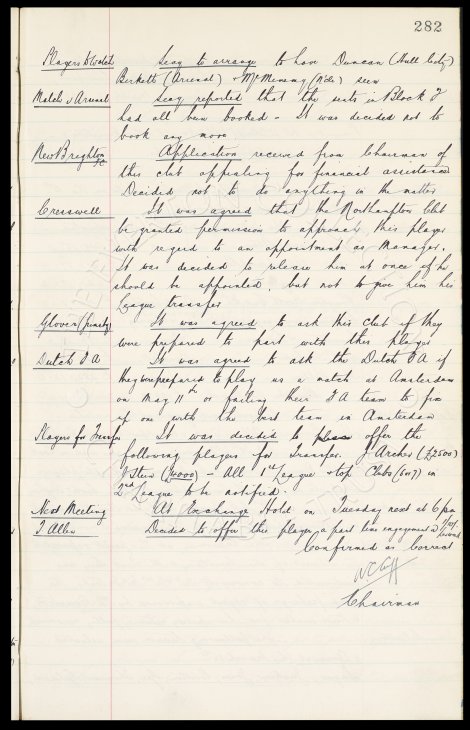 282
Players to Watch Secy to arrange to have Duncan (Hull City)
Birkett (Arsenal) + McMenemy (N'cle) seen
Match v Arsenal Secy reported that the seats in Block J
had all been booked - It was decided not to
book any more
New Brighton FC Application received from Chairman of
this club appealing for financial assistance
Decided not to do anything in the matter
Cresswell It was agreed that the Northampton Club
be granted permission to approach this player
with regard to an appointment as Manager.
It was decided to release him at once if he
should be appointed, but not to give him his
League transfer
Glover (Grimsby) It was agreed to ask this club if they
were prepared to part with this player
Dutch F A It was agreed to ask the Dutch F A if
they were prepared to play us a match at Amsterdam
on May 11th or failing their F A team to fix
up one with the best team in Amsterdam
Players for Transfer It was decided to offer the
following players for transfer. J Archer (£2500)
J Stein (£4000) - All 1st League + top Clubs (6 or 7) in
2nd League to be notified.
Next Meeting At Exchange Hotel on Tuesday next at 6 pm
T Allen Decided to offer this player a part time engagement
Confirmed as Correct
W C Cuff
Chairman